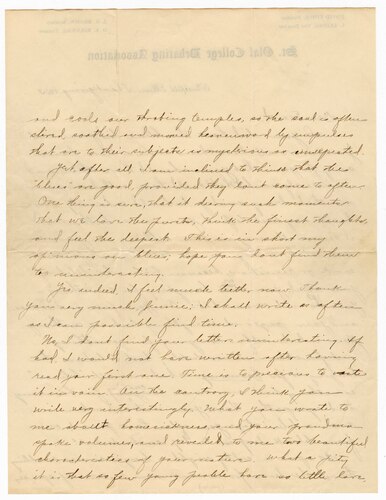 St. Olaf College Debating Association
and cools our throbing temples, so the soul is often
stored, soothed and moved homeward by impulses
that are to their subjects as mysterious as unexpected.
Yet after all I am inclined to think that the
blues are good, provided they dont come to often.
One thing is sure, that it during such moments
that we love the purest, think the finest thoughts,
and feel the deepest. This is in short my
opinions on blues; hope you dont find them
to uninteresting.
Yes indeed I feel much better, now. Thank
you very much, Junie; I shall write as often
as I can possibly find time.
No, I dont find your letters uninteresting. If
had I would not have written after having
read your first one. Time is to precious to waste
it in vain. On the contrary, I think you
write very interestingly. What you wrote to
me about homesickness and your grandma
spoke volumes, and revealed to me two beautiful
characteristics of your nature. What a pity
it is that so few young people have so little love